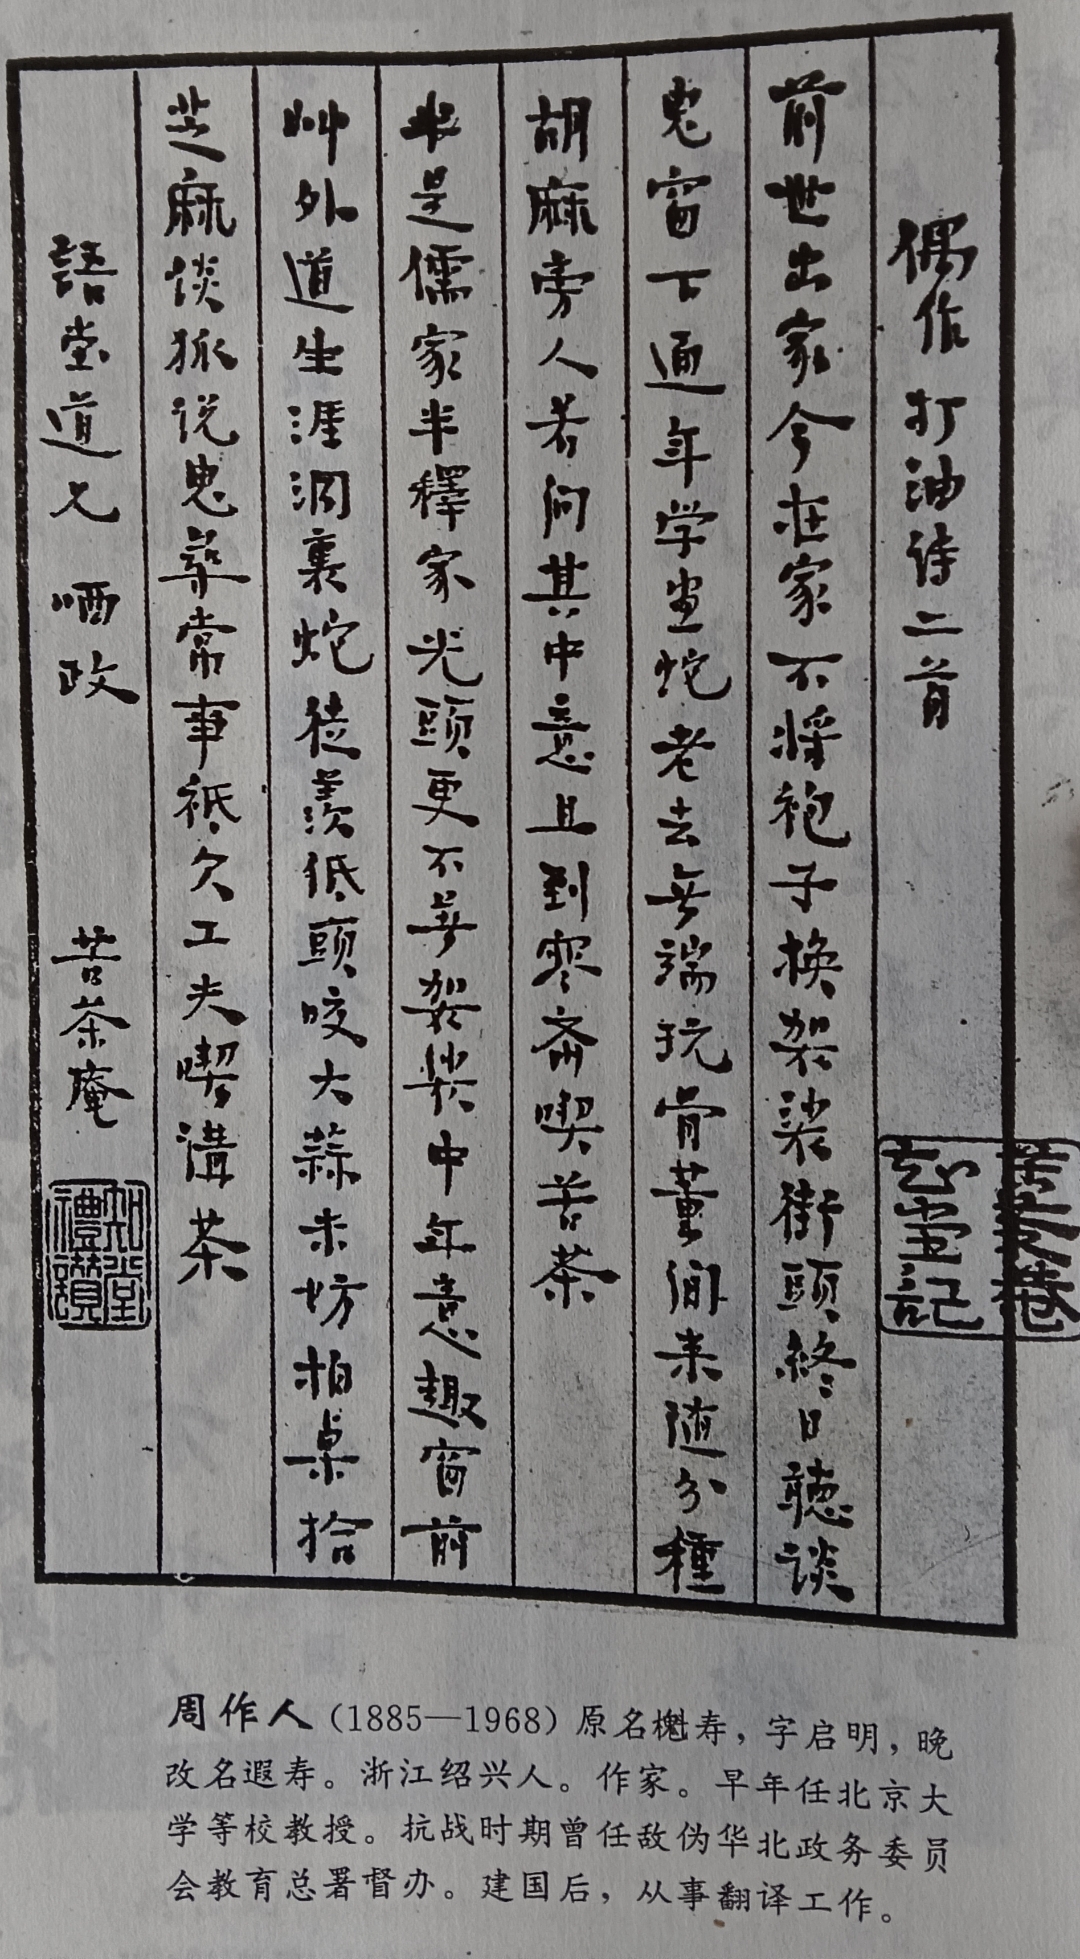 偶作打油诗二首
前世出家今在家不将袍子换袈裟街頭终日聴谈
鬼窗下通年学画蛇老去無端玩骨董闲来随分種
胡麻旁人若问其中意且到寒斎喫苦茶
半是儒家半釋家光頭更不着袈裟中年意趣窗前
艸外道生涯洞裏蛇徒羡低頭咬大蒜未妨拍桌拾
芝麻谈狐说鬼尋常事祗欠工夫喫講茶
語堂道兄 哂政 苦茶庵
知堂禮讃
苦茶菴
知堂記
周作人（1885—1968）原名櫆寿，字启明，晚
改名遐寿。浙江绍兴人。作家。早年任北京大
学等校教授。抗战时期曾任敌伪华北政务委员
会教育总署督办。建国后，从事翻译工作。